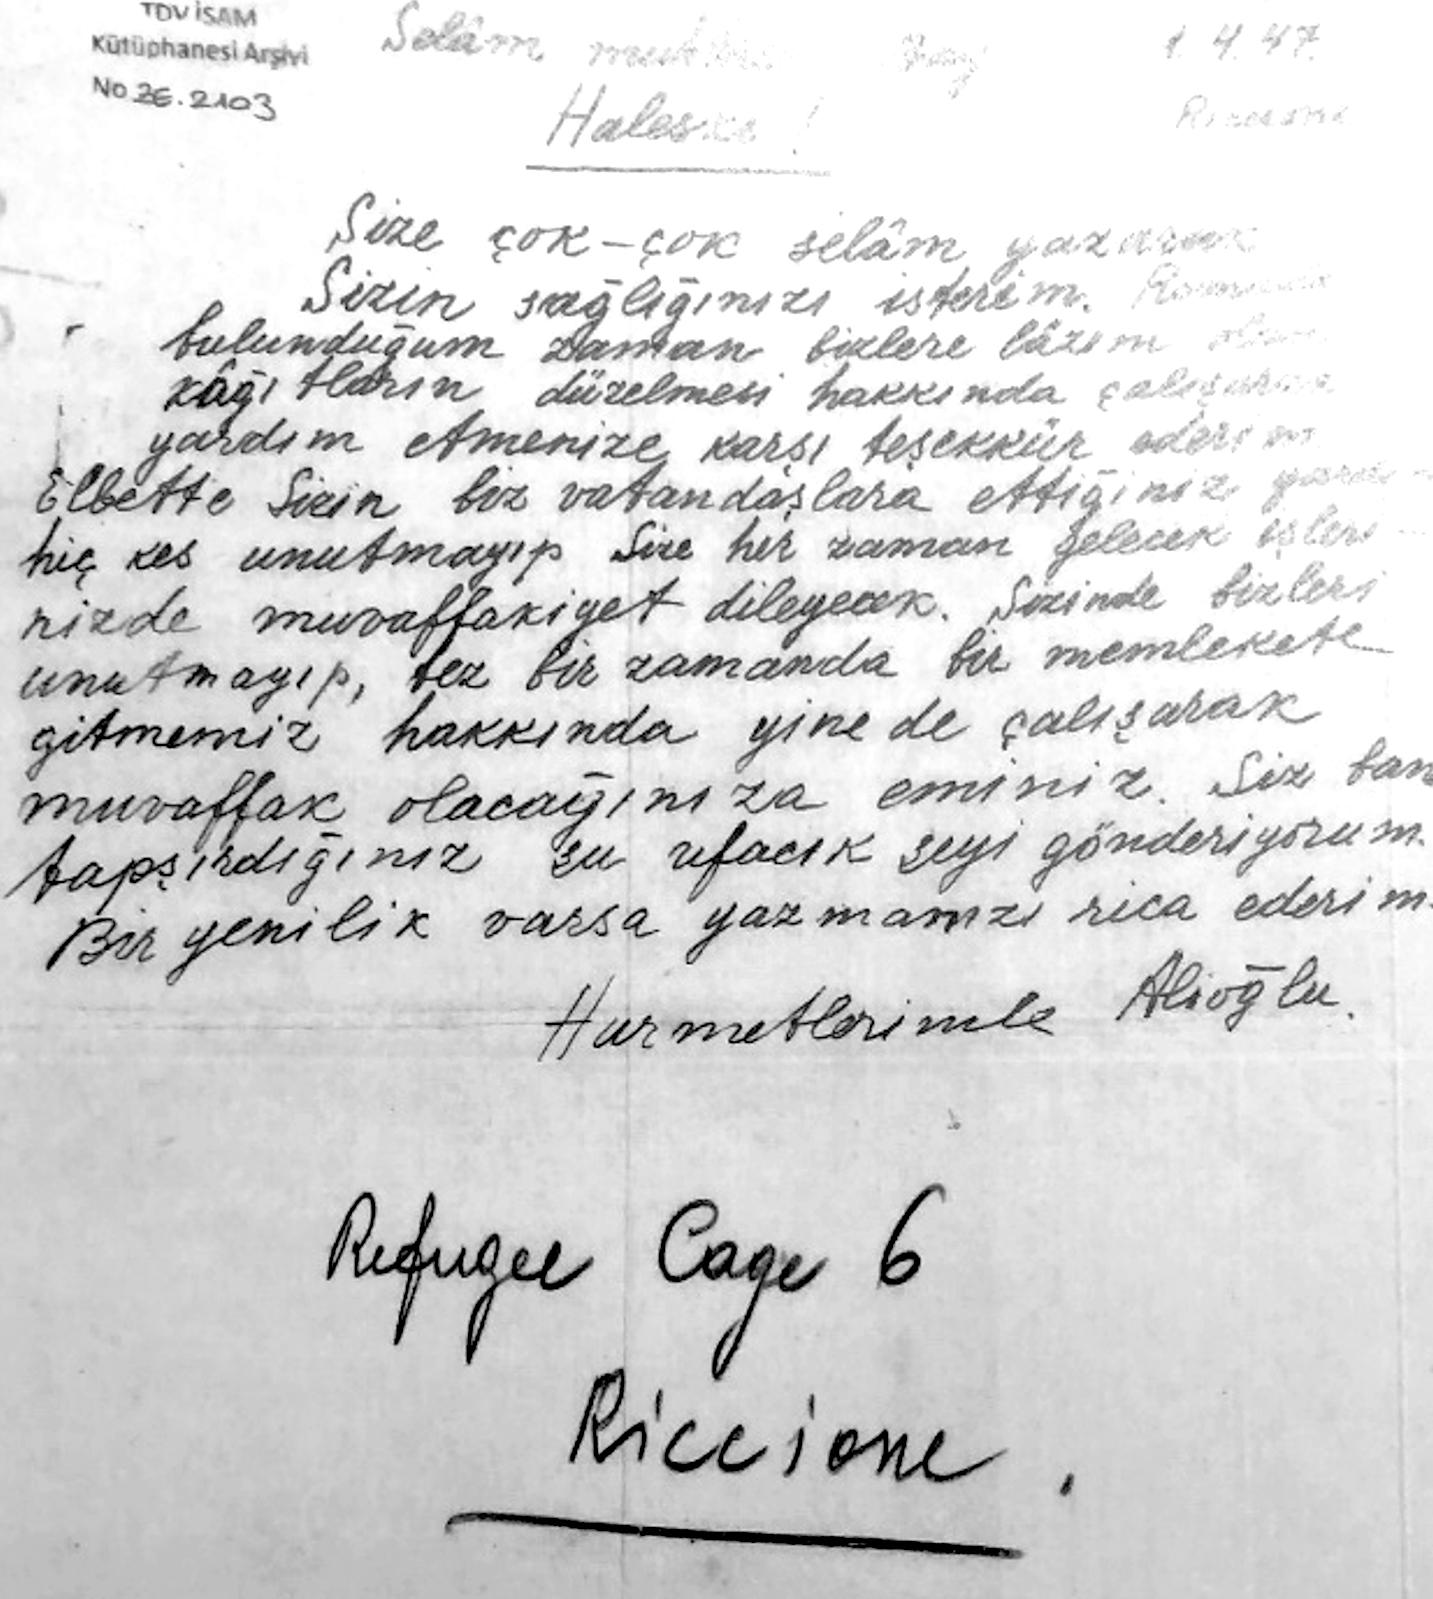 TDV İSAM
Kütüphanesi Arşivi
No ZE.2103
Selâm
1.4.47.
Size çok-çok selâm yazarak
Sizin sağlığınızı isterim.
bulunduğum zaman bizlere lâzım olan
kâğıtların düzelmesi hakkında çalışarak
yardım etmenize karşı teşekkür ederim
Elbette Sizin biz vatandaşlara ettiğiniz
hiç kes unutmayıp Size her zaman gelecek işleri-
nizde muvaffakiyet dileyecek. Sizinde bizleri
unutmayıp, tez bir zamanda bir memlekete
gitmemiz hakkında yine de çalışarak
muvaffak olacağınıza eminiz. Siz ban
tapşırdığınız şu ufacık şeyi gönderiyorum.
Bir yenilik varsa yazmanızı rica ederim.
Hurmetlerimle Alioğlu.
Refugee Cage 6
Riccione.